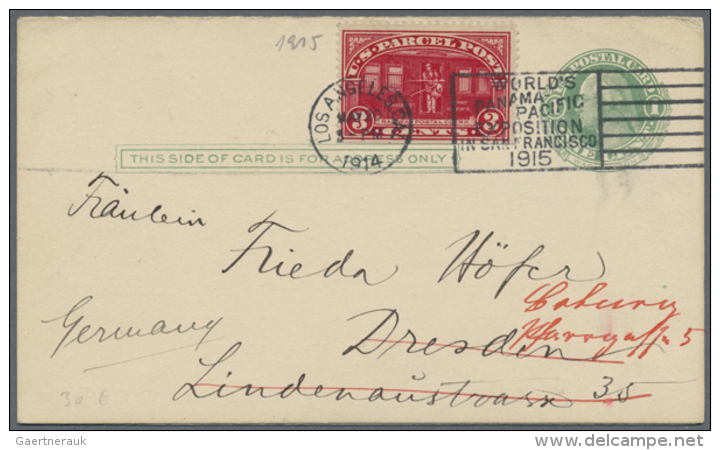 1915
U.S. PARCEL POST
POSTAL CARD
3 RAILWAY POSTAL CLERK 3
CENTS
LOS ANGELES, CAL.
MAY
PM
1914
WORLD'S
PANAMA PACIFIC
EXPOSITION
IN SAN FRANCISCO
1915
THIS SIDE OF CARD IS FOR ADDRESS ONLY
Fräulein
Frieda Höfer
Coburg
Germany
Pfarrgasse 5
Dresden
Lindenaustrasse 35
30 €
Gaertnerauk
delcampe.net